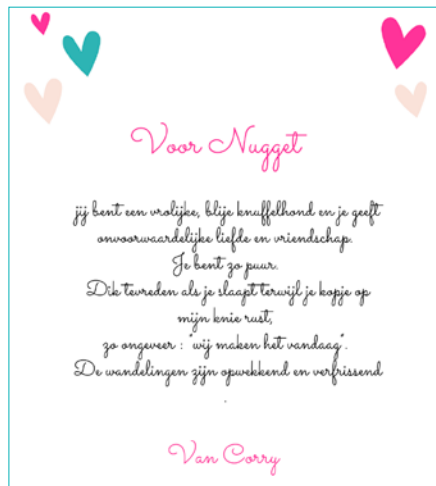 Voor Nugget
jij bent een vrolijke, blije knuffelhond en je geeft
onvoorwaardelijke liefde en vriendschap.
Je bent zo puur.
Dik tevreden als je slaapt terwijl je kopje op
mijn knie rust,
zo ongeveer : "wij maken het vandaag".
De wandelingen zijn opwekkend en verfrissend
.
Van Corry